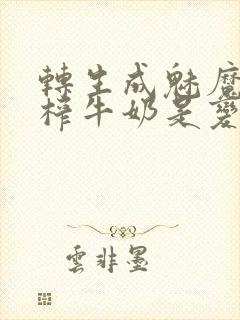 轉生成魅魔
榨牛奶是變
雲非墨